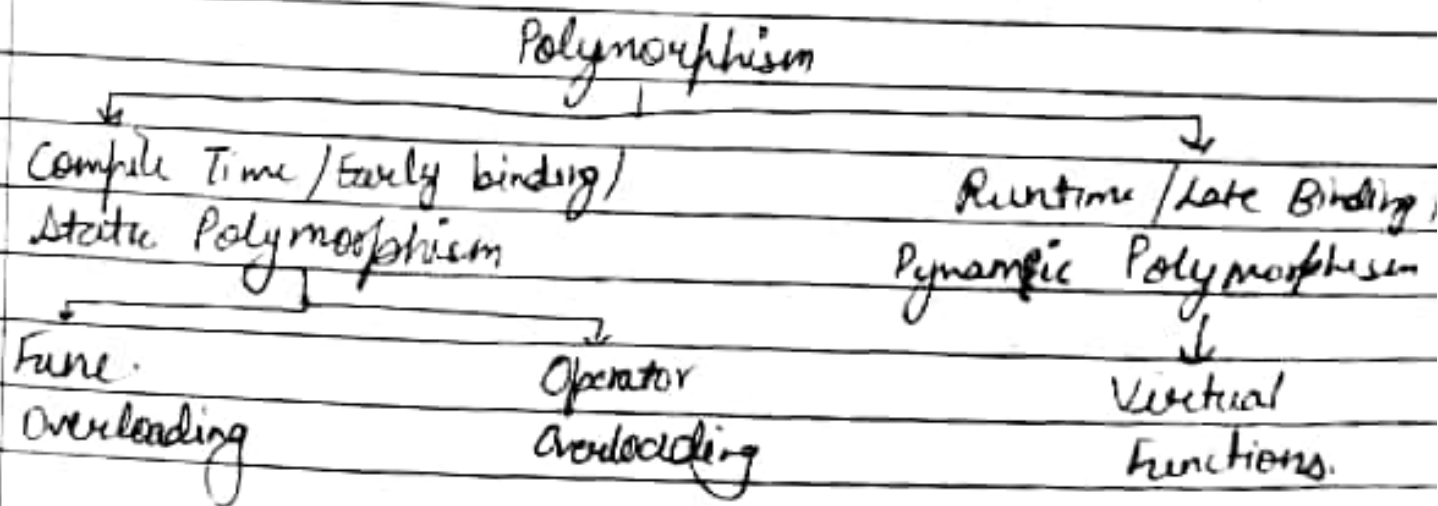 Polymorphism
Compile Time / Early binding /
Static Polymorphism
Runtime / Late Binding /
Dynamic Polymorphism
Func.
Overloading
Operator
Overloading
Virtual
Functions.